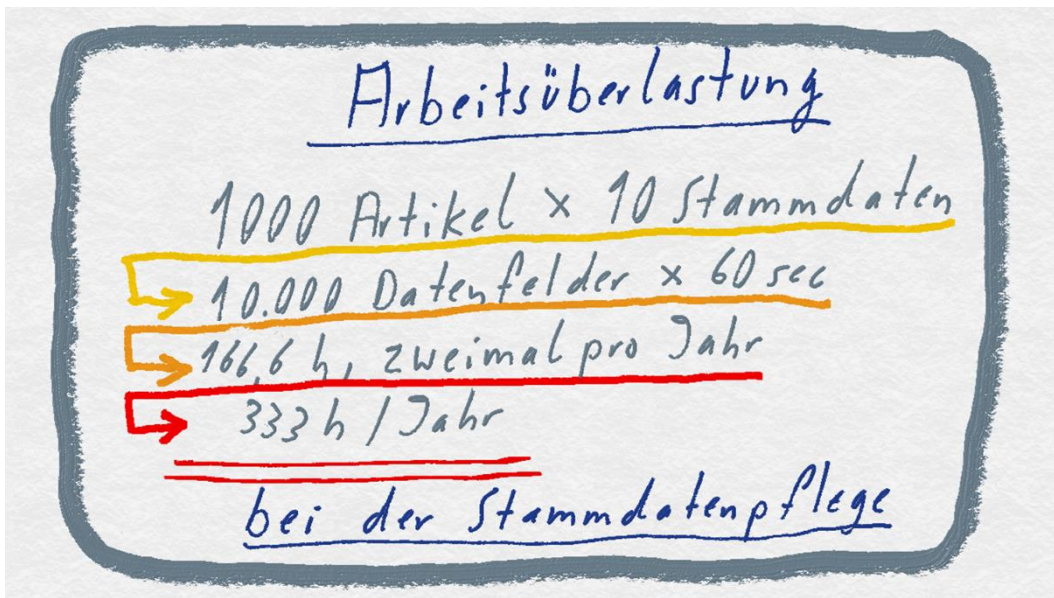 Arbeitsüberlastung
1000 Artikel x 10 Stammdaten
10.000 Datenfelder x 60 sec
166,6 h, zweimal pro Jahr
333 h / Jahr
bei der Stammdatenpflege